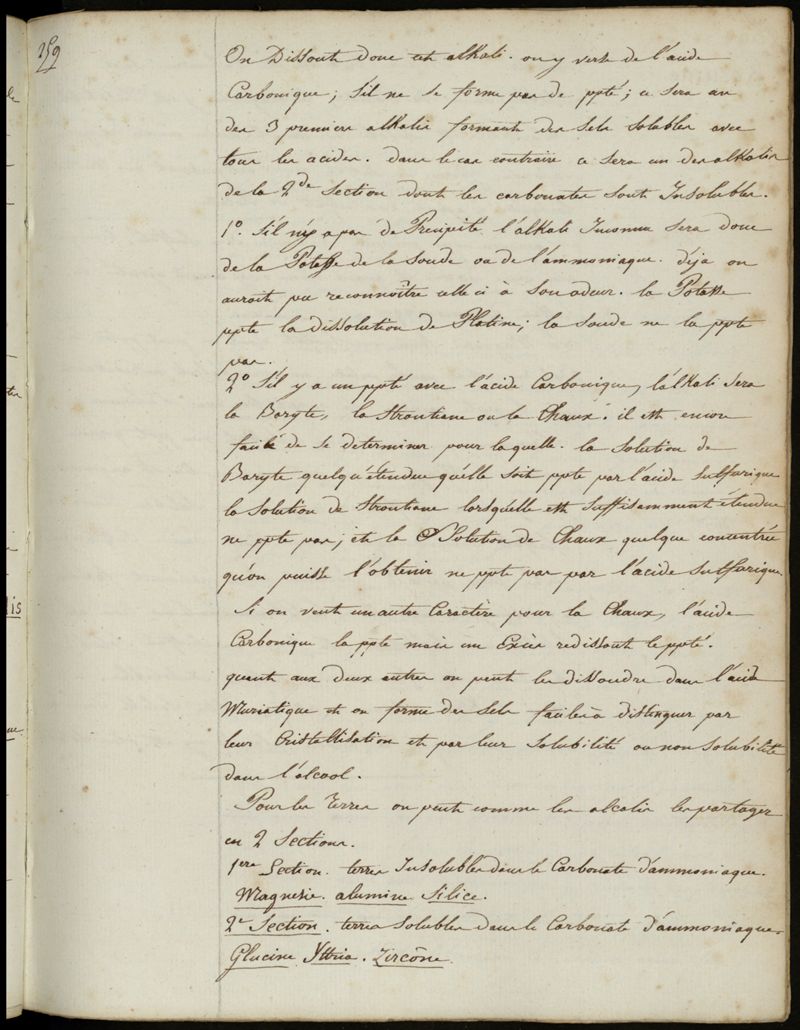 259
On Dissout donc cet alkali. on y verse de l'acide
Carbonique; s'il ne se forme pas de ppté; ce sera un
des 3 premiers alkalis formant des sels solubles avec
tous les acides. dans le cas contraire ce sera un des alkalis
de la 2de Section dont les carbonates sont Insolubles.
1o. S'il n'y a pas de Precipité l'alkali Inconnu sera donc
de la Potasse de la soude ou de l'ammoniaque. déja on
auroit pu reconnoître celle ci à son odeur. la Potasse
ppte la dissolution de Platine; la soude ne la ppte
pas.
2o S'il y a un ppté avec l'acide Carbonique, l'alkali sera
la Baryte, la Strontiane ou la Chaux. il est encore
facile de se determiner pour laquelle. la solution de
Baryte quelqu'étendue qu'elle soit ppte par l'acide Sulfurique
la solution de Strontiane lorsqu'elle est suffisamment étendue
ne ppte pas; et la Solution de Chaux quelque concentrée
qu'on puisse l'obtenir ne ppte pas par l'acide Sulfurique.
Si on veut un autre Caractère pour la Chaux, l'acide
Carbonique la ppte mais un Excès redissout le ppté.
quant aux deux autres on peut les dissoudre dans l'acide
Muriatique et on forme des sels faciles à distinguer par
leur Cristallisation et par leur solubilité ou non solubilité
dans l'alcool.
Pour les Terres on peut comme les alcalis les partager
en 2 Sections.
1ere Section. terres Insolubles dans le Carbonate d'ammoniaque.
Magnesie. alumine. Silice.
2e Section. terres solubles dans le Carbonate d'ammoniaque.
Glucine. Yttria. Zircône.